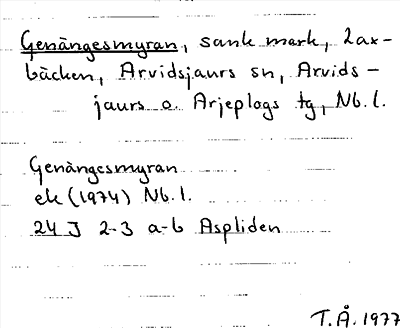 Genängesmyran, sank mark, Lax-
bäcken, Arvidsjaurs sn, Arvids-
jaurs o. Arjeplogs tg, Nb. l.
Genängesmyran
ek (1974) Nb. l.
24 J 2-3 a-b Aspliden
T.Å. 1977